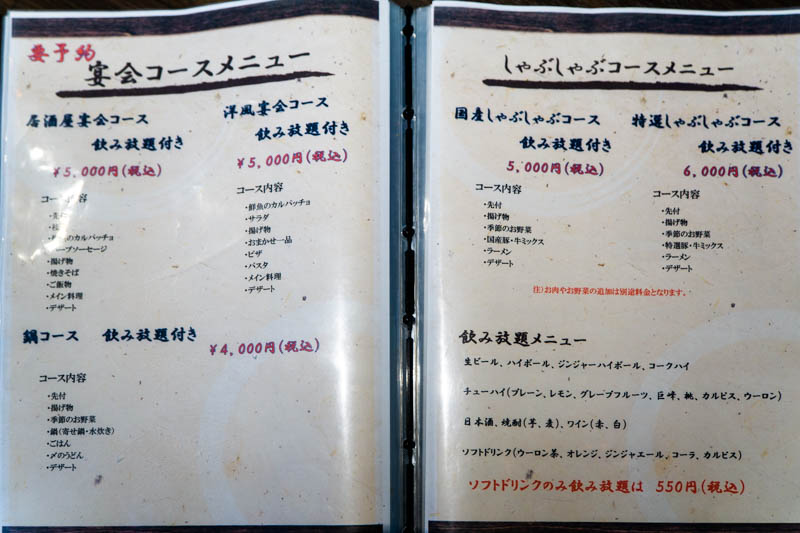 要予約
宴会コースメニュー
居酒屋宴会コース
飲み放題付き
¥5,000円(税込)
コース内容
・先付
・鮮魚のカルパッチョ
・ソーセージ
・揚げ物
・焼きそば
・ご飯物
・メイン料理
・デザート
洋風宴会コース
飲み放題付き
¥5,000円(税込)
コース内容
・鮮魚のカルパッチョ
・サラダ
・揚げ物
・おまかせ一品
・ピザ
・パスタ
・メイン料理
・デザート
鍋コース 飲み放題付き
¥4,000円(税込)
コース内容
・先付
・揚げ物
・季節のお野菜
・鍋(寄せ鍋・水炊き)
・ごはん
・〆のうどん
・デザート
しゃぶしゃぶコースメニュー
国産しゃぶしゃぶコース
飲み放題付き
5,000円(税込)
コース内容
・先付
・揚げ物
・季節のお野菜
・国産豚・牛ミックス
・ラーメン
・デザート
特選しゃぶしゃぶコース
飲み放題付き
6,000円(税込)
コース内容
・先付
・揚げ物
・季節のお野菜
・特選豚・牛ミックス
・ラーメン
・デザート
注)お肉やお野菜の追加は別途料金となります。
飲み放題メニュー
生ビール、ハイボール、ジンジャーハイボール、コークハイ
チューハイ(プレーン、レモン、グレープフルーツ、巨峰、桃、カルピス、ウーロン)
日本酒、焼酎(芋、麦)、ワイン(赤、白)
ソフトドリンク(ウーロン茶、オレンジ、ジンジャエール、コーラ、カルピス)
ソフトドリンクのみ飲み放題は 550円(税込)